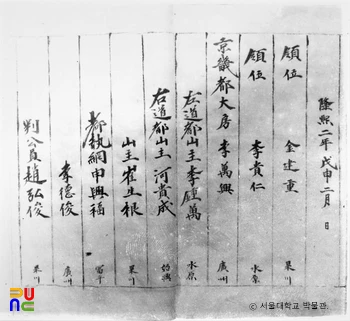 隆熙二年戊申二月 日
領位 金建重 果川
領位 李貴仁 水原
京畿都大房 李萬興 廣州
左道都山主 李鍾萬 水原
右道都山主 河貴成 始興
山主 崔 根 果川
都執綱 申興福
李德俊 廣州
判公員 趙弘俊 果川
ⓒ 서울대학교 박물관.